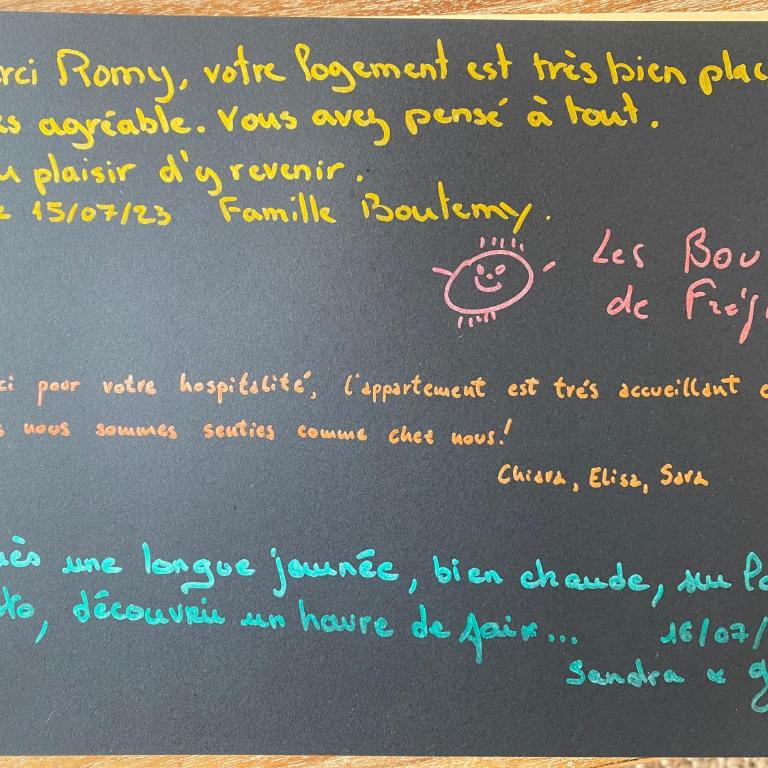 rci Romy, votre logement est très bien plac
s agréable. Vous avez pensé à tout.
u plaisir d'y revenir.
e 15/07/23 Famille Boutemy.
Les Bou
de Fréj
ci pour votre hospitalité, l'appartement est trés accueillant e
s nous sommes senties comme chez nous!
Chiara, Elisa, Sara
ès une longue journée, bien chaude, sur la
to, découvrir un havre de paix...
16/07/
Sandra & g